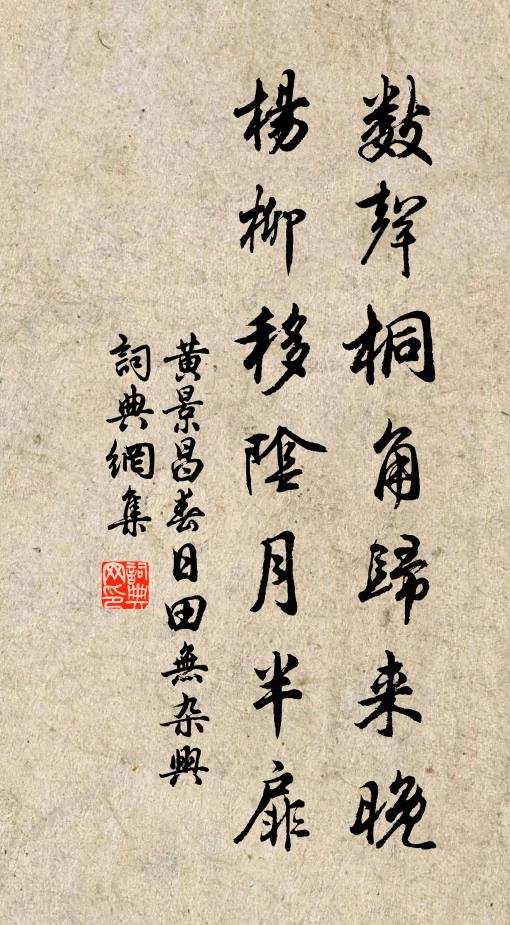 數聲桐角歸来晚
楊柳移陰月半扉
黃景昌春日田無杂興
詞典網集
詞典网印